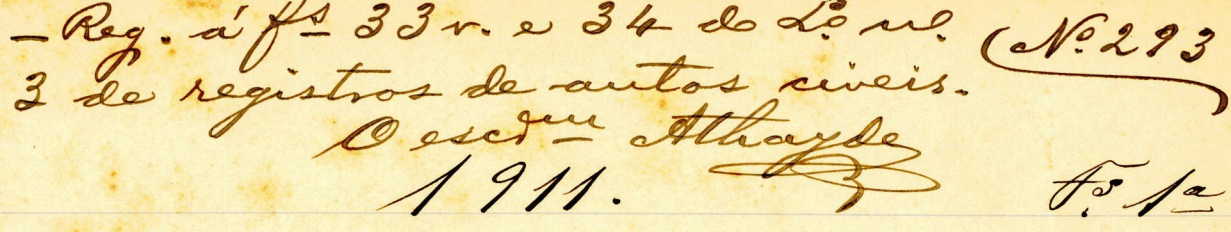 – Reg. á fs 33 v. e 34 do Lº. nº. (Nº. 293
3 de registros de autos civeis.
O escrm Athayde
1911. Fs. 1ª